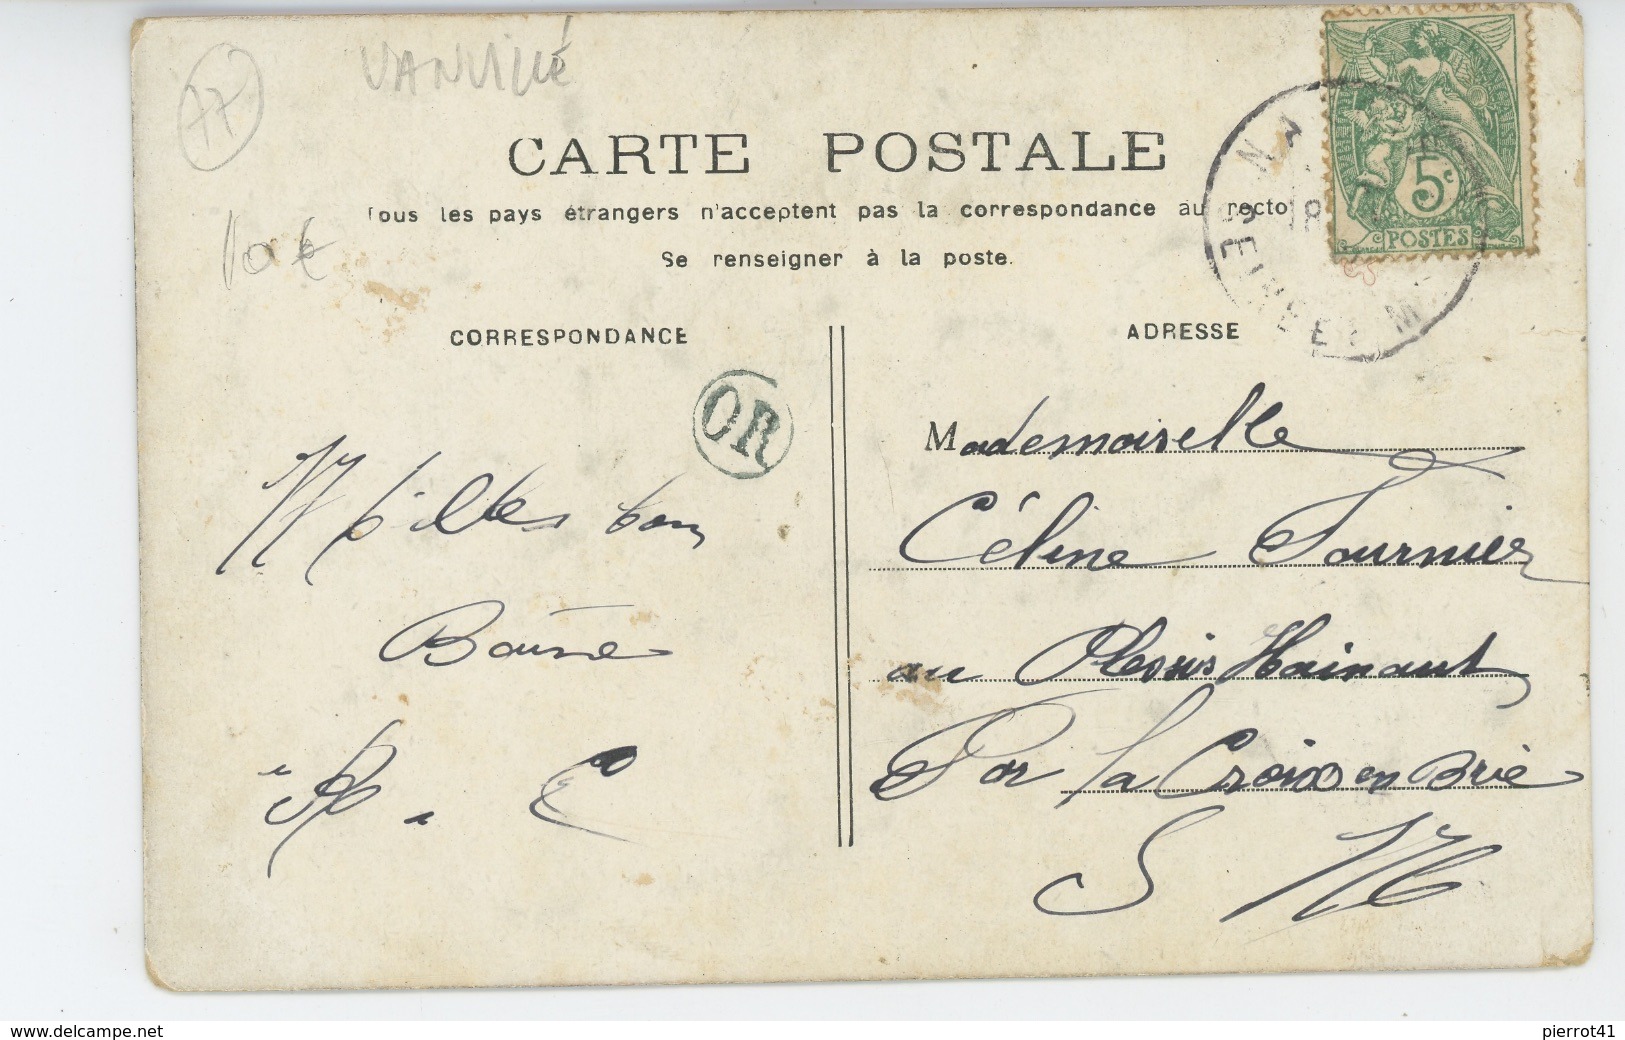 77
VANVILLÉ
CARTE POSTALE
Tous les pays étrangers n'acceptent pas la correspondance au recto
Se renseigner à la poste.
10 €
NA
18
SEINE ET M
5c
POSTES
CORRESPONDANCE
ADRESSE
OR
Milles bon
Mademoiselle
Céline Fournier
au Plessis Hainaut
Par la Croix en Brie
S M
www.delcampe.net
pierrot41